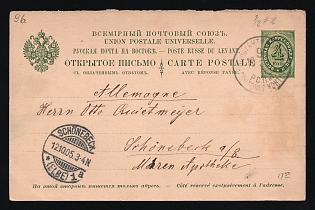 96.
ВСЕМІРНЫЙ ПОЧТОВЫЙ СОЮЗЪ.
UNION POSTALE UNIVERSELLE.
РУССКАЯ ПОЧТА НА ВОСТОКѢ. — POSTE RUSSE DU LEVANT.
ОТКРЫТОЕ ПИСЬМО CARTE POSTALE
СЪ ОПЛАЧЕННЫМЪ ОТВѢТОМЪ. AVEC RÉPONSE PAYÉE.
Allemagne
Herrn Otto
SCHÖNEBECK
12.10.05. 3-4N.
(ELBE) 1 a
Schönebeck a/E
Apotheke
На этой сторонѣ пишется только адресъ. — Côté réservé exclusivement à l'adresse.